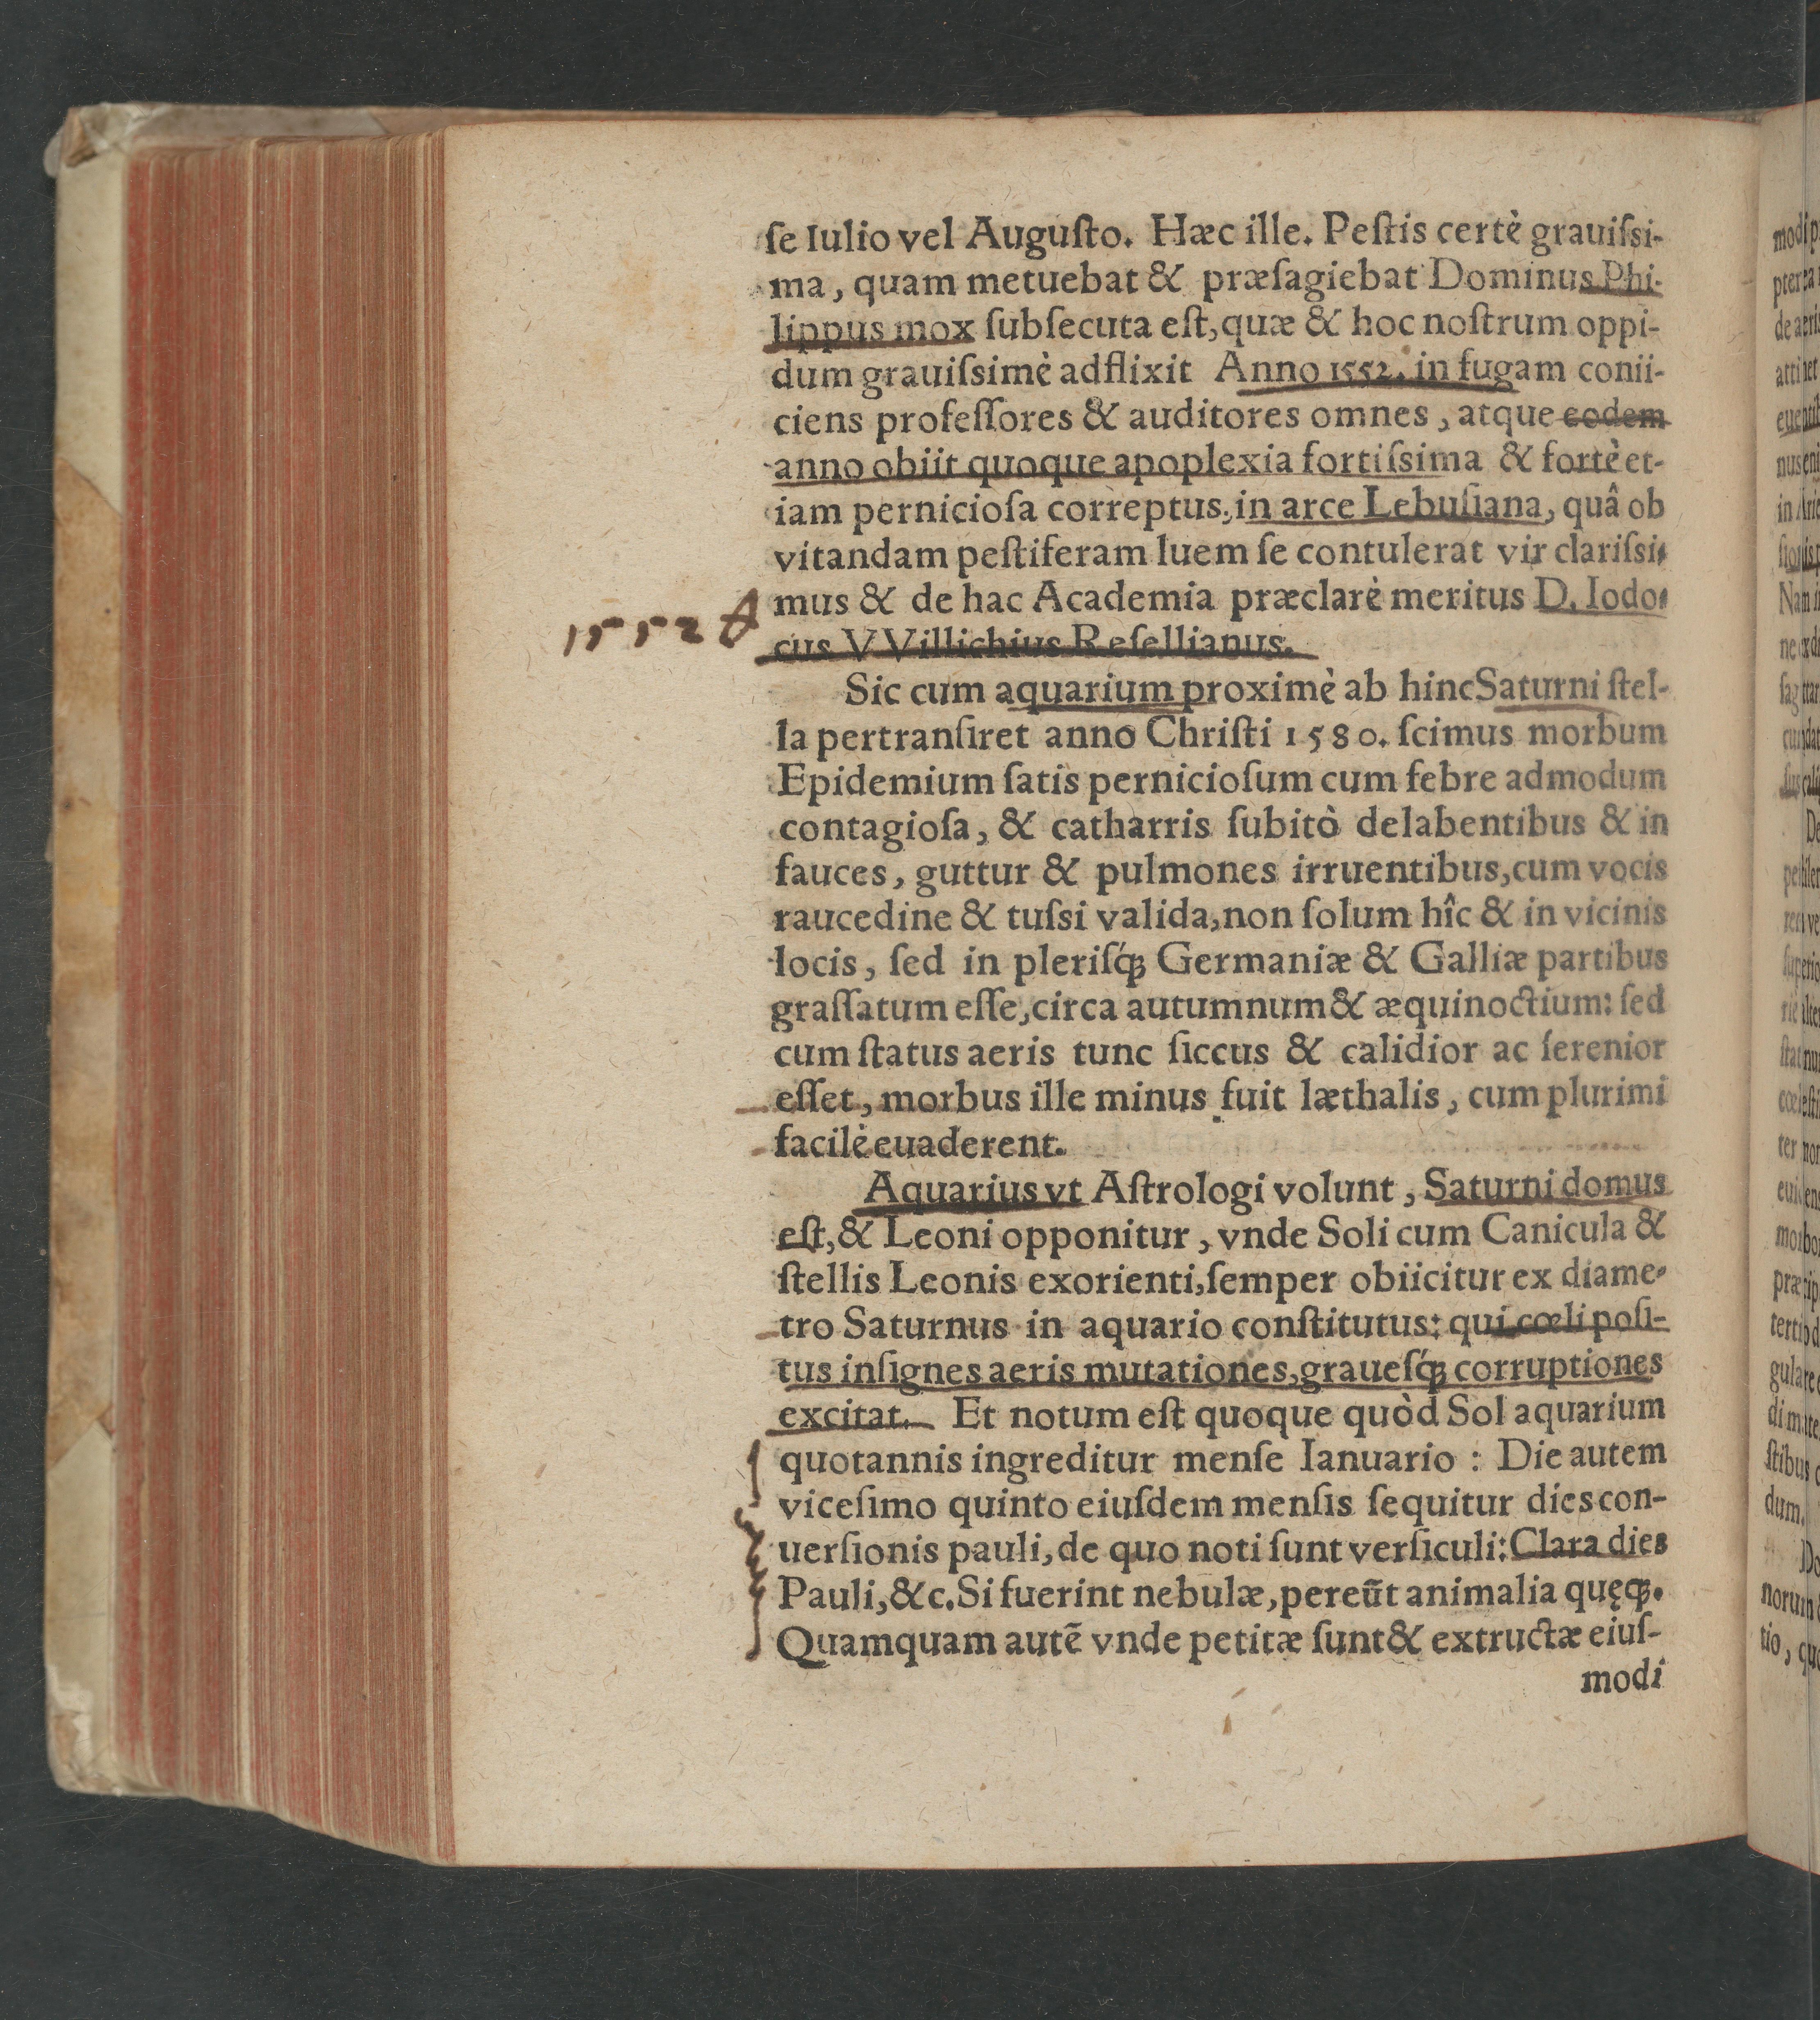 ſe Iulio vel Auguſto. Hæc ille. Peſtis certè grauiſsi-
ma, quam metuebat & præſagiebat Dominus Phi-
lippus mox ſubſecuta eſt, quæ & hoc noſtrum oppi-
dum grauiſsimè adflixit Anno 1552. in fugam conii-
ciens profeſſores & auditores omnes, atque eodem
anno obiit quoque apoplexia fortiſsima & fortè et-
iam pernicioſa correptus, in arce Lebuſiana, quâ ob
vitandam peſtiferam luem ſe contulerat vir clariſsi-
mus & de hac Academia præclarè meritus D. Iodo-
1552
cus VVillichius Reſellianus.
Sic cum aquarium proximè ab hinc Saturni ſtel-
la pertranſiret anno Chriſti 1580. ſcimus morbum
Epidemium ſatis pernicioſum cum febre admodum
contagioſa, & catharris ſubitò delabentibus & in
fauces, guttur & pulmones irruentibus, cum vocis
raucedine & tuſsi valida, non ſolum hîc & in vicinis
locis, ſed in pleriſq́ꝫ Germaniæ & Galliæ partibus
graſſatum eſſe, circa autumnum & æquinoctium: ſed
cum ſtatus aeris tunc ſiccus & calidior ac ſerenior
eſſet, morbus ille minus fuit læthalis, cum plurimi
facilè euaderent.
Aquarius vt Aſtrologi volunt, Saturni domus
eſt, & Leoni opponitur, vnde Soli cum Canicula &
ſtellis Leonis exorienti, ſemper obiicitur ex diame-
tro Saturnus in aquario conſtitutus: qui cœli poſi-
tus inſignes aeris mutationes, graueſq́ꝫ corruptiones
excitat. Et notum eſt quoque quòd Sol aquarium
quotannis ingreditur menſe Ianuario : Die autem
viceſimo quinto eiuſdem menſis ſequitur dies con-
uerſionis pauli, de quo noti ſunt verſiculi: Clara dies
Pauli, &c. Si fuerint nebulæ, pereũt animalia quęqꝫ.
Quamquam autẽ vnde petitæ ſunt & extructæ eiuſ-
modi